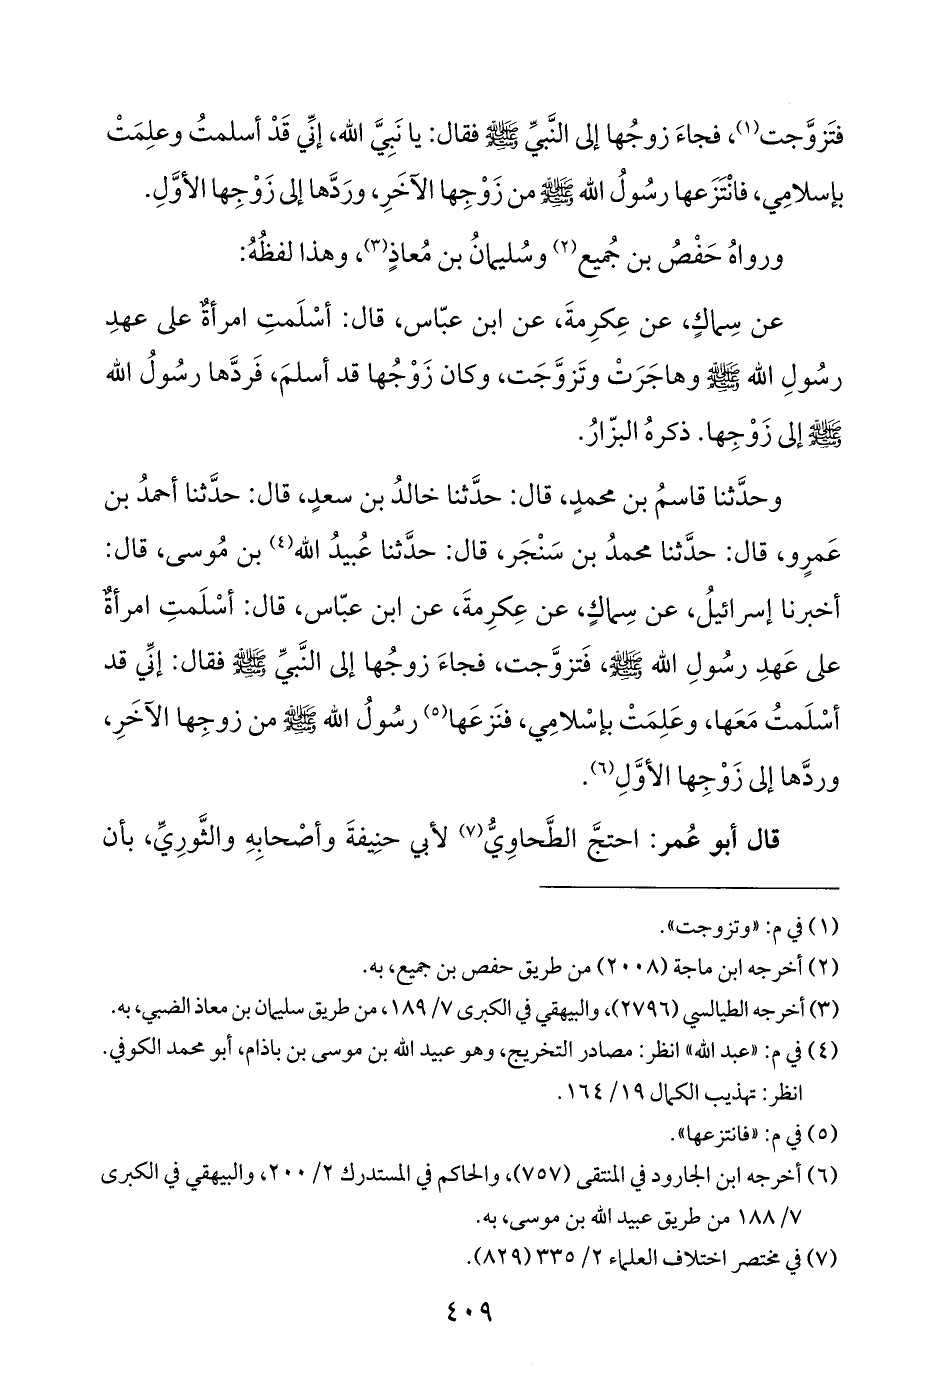 فتَزوَّجت(١)، فجاءَ زوجُها إلى النَّبيِّ ﷺ فقال: يا نَبِيَّ الله، إنِّي قَدْ أسلمتُ وعلِمَتْ
بإسلامِي، فانْتَزَعها رسُولُ الله ﷺ من زَوْجِها الآخَرِ، وردَّها إلى زَوْجِها الأوَّلِ.
ورواهُ حَفْصُ بن جُميع(٢) وسُليمانُ بن مُعاذٍ(٣)، وهذا لفظُهُ:
عن سِماكٍ، عن عِكرِمةَ، عن ابن عبّاس، قال: أسْلَمتِ امرأةٌ على عهدِ
رسُولِ الله ﷺ وهاجَرَتْ وتَزوَّجَت، وكان زَوْجُها قد أسلمَ، فَردَّها رسُولُ الله
ﷺ إلى زَوْجِها. ذكرهُ البزّارُ.
وحدَّثنا قاسمُ بن محمدٍ، قال: حدَّثنا خالدُ بن سعدٍ، قال: حدَّثنا أحمدُ بن
عَمرٍو، قال: حدَّثنا محمدُ بن سَنْجَر، قال: حدَّثنا عُبيدُ الله(٤) بن مُوسى، قال:
أخبرنا إسرائيلُ، عن سِماكٍ، عن عِكرِمةَ، عن ابن عبّاس، قال: أسْلَمتِ امرأةٌ
على عَهدِ رسُولِ الله ﷺ، فَتزوَّجت، فجاءَ زوجُها إلى النَّبيِّ ﷺ فقال: إنِّي قد
أسْلَمتُ مَعَها، وعَلِمَتْ بإسْلامِي، فنَزعَها(٥) رسُولُ الله ﷺ من زوجِها الآخَرِ،
وردَّها إلى زَوْجِها الأوَّلِ(٦).
قال أبو عُمر: احتجَّ الطَّحاوِيُّ(٧) لأبي حنِيفةَ وأصْحابِهِ والثَّوريِّ، بأن
(١) في م: «وتزوجت».
(٢) أخرجه ابن ماجة (٢٠٠٨) من طريق حفص بن جميع، به.
(٣) أخرجه الطيالسي (٢٧٩٦)، والبيهقي في الكبرى ٧/ ١٨٩، من طريق سليمان بن معاذ الضبي، به.
(٤) في م: «عبد الله» انظر: مصادر التخريج، وهو عبيد الله بن موسى بن باذام، أبو محمد الكوفي.
انظر: تهذيب الكمال ١٩/ ١٦٤.
(٥) في م: «فانتزعها».
(٦) أخرجه ابن الجارود في المنتقى (٧٥٧)، والحاكم في المستدرك ٢/ ٢٠٠، والبيهقي في الكبرى
٧/ ١٨٨ من طريق عبيد الله بن موسى، به.
(٧) في مختصر اختلاف العلماء ٢/ ٣٣٥ (٨٢٩).
٤٠٩